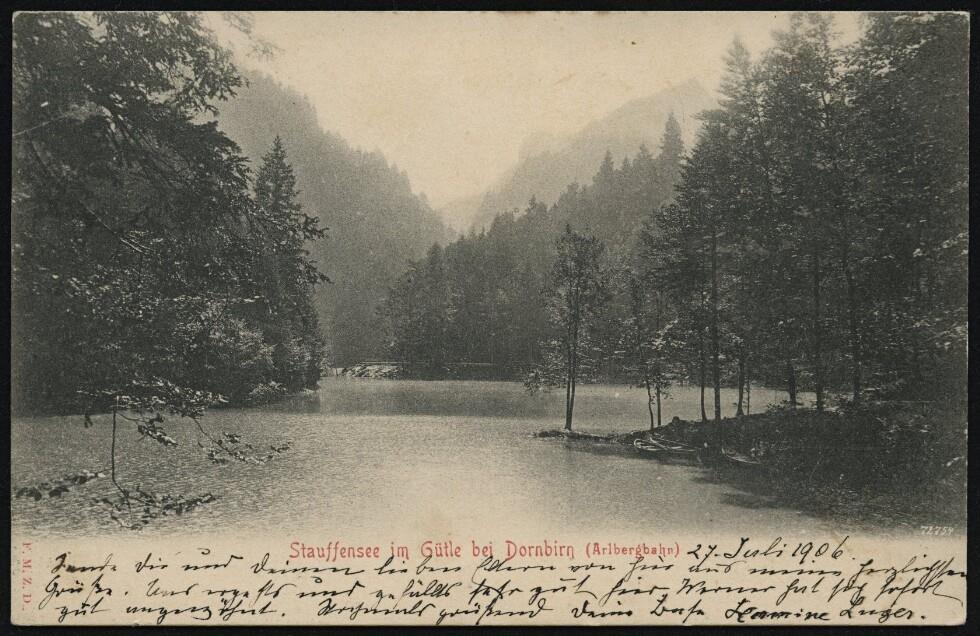 72754
Stauffensee im Gütle bei Dornbirn (Arlbergbahn) 27. Juli 1906.
F. M. Z. D.
Sende dir und deinen lieben Eltern von hier aus meine herzlichsten
Grüße. Uns und gefällts sehr gut hier, Werner hat sich sofort
gut angewöhnt. Nochmals grüßend Deine Base Hermine Luger.